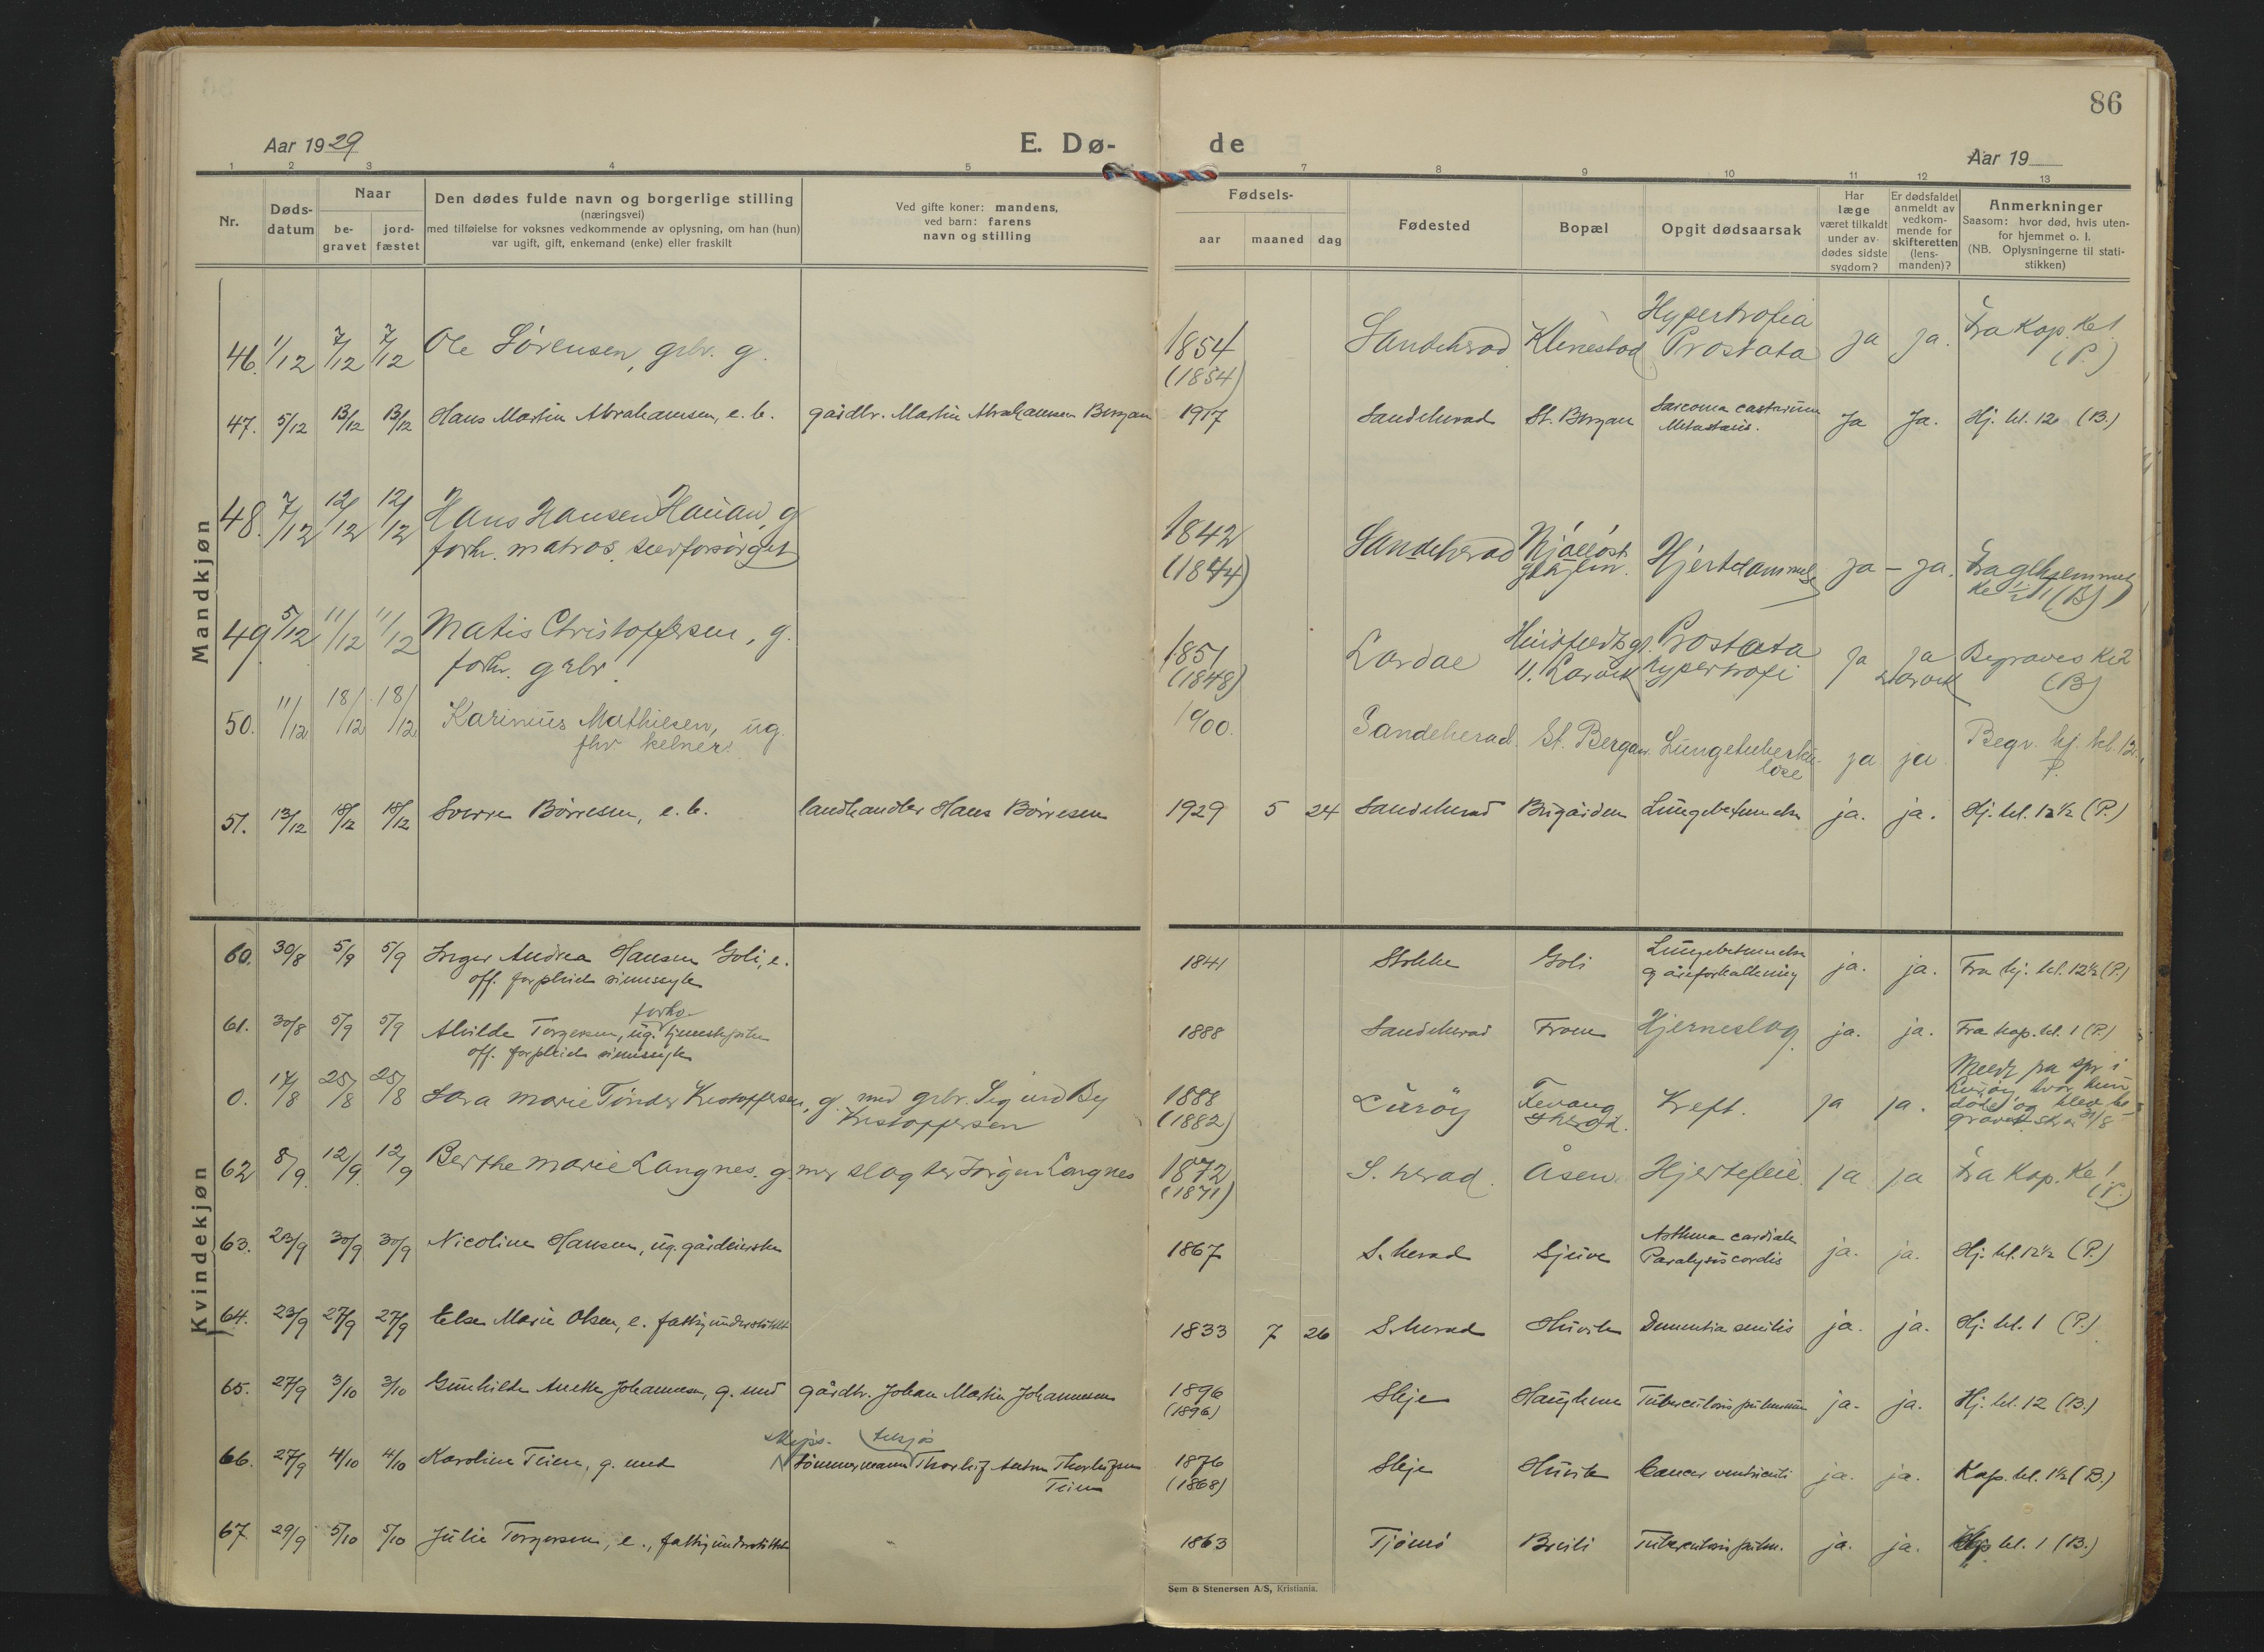 86
Aar 1929
E. Dø-
de
Aar 19
1 2 3 4 5 7 8 9 10 11 12 13
Nr.
Døds-
datum
Naar
be-
gravet
jord-
fæstet
Den dødes fulde navn og borgerlige stilling
(næringsvei)
med tilføielse for voksnes vedkommende av oplysning, om han (hun)
var ugift, gift, enkemand (enke) eller fraskilt
Ved gifte koner: mandens,
ved barn: farens
navn og stilling
Fødsels-
aar maaned dag
Fødested
Bopæl
Opgit dødsaarsak
Har
læge
været tilkaldt
under av-
dødes sidste
sygdom?
Er dødsfaldet
anmeldt av
vedkom-
mende for
skifteretten
(lens-
manden)?
Anmerkninger
Saasom: hvor død, hvis uten-
for hjemmet o. l.
(NB. Oplysningerne til stati-
stikken)
Mandkjøn
46. 1/12 7/12 7/12 Ole Sørensen, grbr. g. 1854 (1854) Sandeherad Klinestad Hypertrofia Prostata ja ja. Fra Kap. Kl 1 (P.)
47. 5/12 13/12 13/12 Hans Martin Abrahamsen, e. b. gårdbr. Martin Abrahamsen Bergan 1917 Sandeherad St. Bergan Sarcoma Metastasis. Ja Ja. Hj. kl. 12 (B.)
48. 7/12 12/12 12/12 Hans Hansen Hauan, g
forh. matros 1842 (1844) Sandeherad Hjertelammelse ja – ja. Fra glhjemmet (B)
49 5/12 11/12 11/12 Matis Christoffersen, g.
forh. grbr. 1851 (1848) Lardal Larvik Prostata hypertrofi ja ja Larvik Begraves Kl 2 (B)
50. 11/12 18/12 18/12 Karinius Mathiesen, ug.
fhv kelner. 1900. Sandeherad. St. Bergan. Lungetuberku-
lose ja ja Begr. hj. kl. 12. P.
51. 13/12 18/12 18/12 Sverre Børresen, e. b. landhandler Hans Børresen 1929 5 24 Sandeherad Brigården Lungebetennelse ja. ja. Hj. kl. 12½ (P.)
Kvindekjøn
60. 30/8 5/9 5/9 Inger Andrea Hansen Goli, e.
off. forpleiet sinnssyk 1841 Stokke Goli Lungebetennelse
og åreforkalkning ja. ja. Fra hj. kl. 12½ (P.)
61. 30/8 5/9 5/9 Alvilde Torgersen, ug. forhv. tjenestepike
off. forpleiet sinnssyk 1888 Sandeherad Fram Hjerneslag ja. ja. Fra kap. kl. 1 (P.)
0. 17/8 25/8 25/8 Sara Marie Tønder Kristoffersen, g. med grbr. Sigurd By
Kristoffersen 1888 (1882) Lurøy Fevang Kreft. ja ja. Lurøy hvor hun
døde og blev be-
gravet
62 8/9 12/9 12/9 Berthe Marie Langnes. g. m. slagter Jørgen Langnes 1872 (1871) S. herad. Åsen Hjertefeil ja ja Fra Kap. Kl 1 (P.)
63. 23/9 30/9 30/9 Nicoline Hansen, ug. gårdeierske 1867 S. herad Sjuve Asthma cardiale
Paralysis cordis ja. ja. Hj. kl. 12½ (P.)
64. 23/9 27/9 27/9 Else Marie Olsen, e. fattigunderstøttet 1833 7 26 S. herad Huvik Dementia senilis ja. ja. Hj. kl. 1 (P.)
65. 27/9 3/10 3/10 Gunhilde Anette Johannesen, g. med gårdbr. Johan Martin Johannesen 1896 (1896) Skje Haughem Tuberculosis pulmonum ja. ja. Hj. kl. 12 (B.)
66. 27/9 4/10 4/10 Karoline Teien, g. med Skips- tømmermann Thorleif Anton Thorleifsen
Teien 1876 (1868) Skje Huvik Cancer ventriculi ja. ja. Kap. kl. 1½ (B.)
67 29/9 5/10 5/10 Julie Torgersen, e., fattigunderstøttet 1863 Tjømø Breili Tuberculosis pulm. ja. ja. kl. 1 (B.)
Sem & Stenersen A/S, Kristiania.